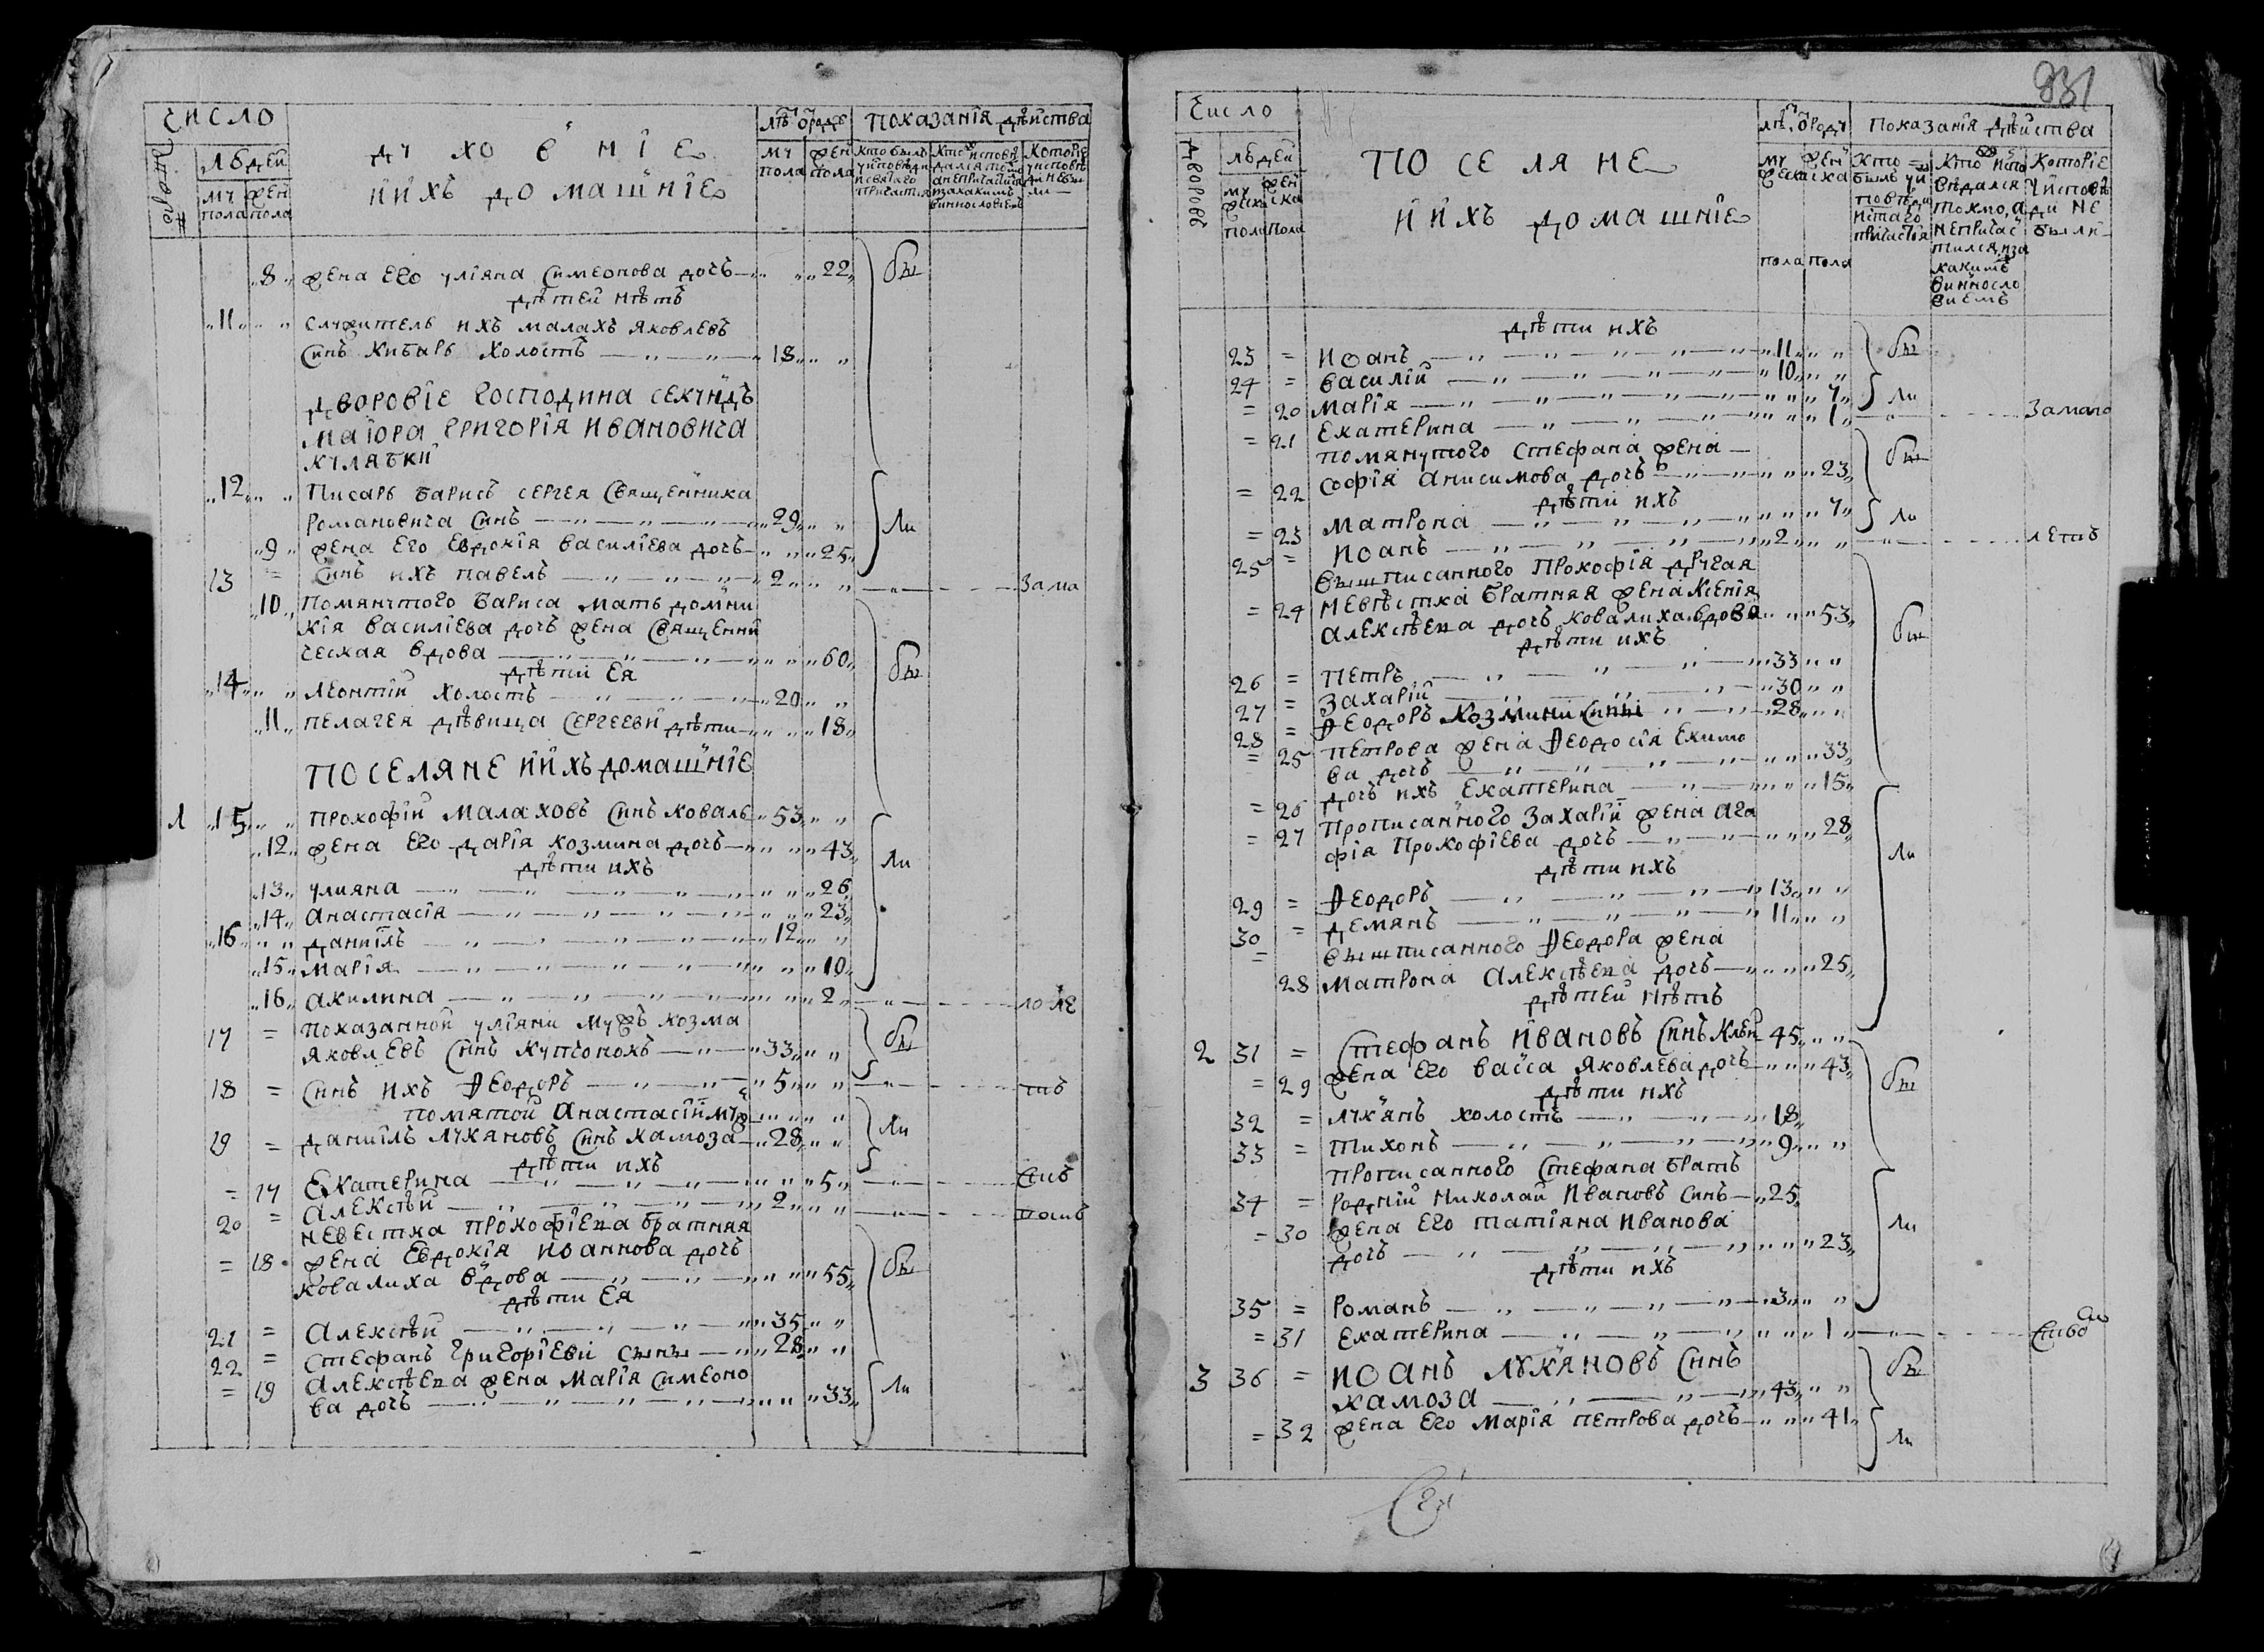 ЧИСЛО
Дворовъ
Людей
муж пола
жен пола
ДУХОВНІЕ
И ИХЪ ДОМАШНІЕ
Лѣта от роду
муж пола
жен пола
Показанія дѣйства
8 жена его Уліяна Симеонова дочь 22 бы
дѣтей нѣтъ
11 служитель ихъ Малахъ Яковлевъ
Синъ Хибарь холостъ 18
дворовіе господина секундъ
маіора Григорія Ивановича
Кулябки
12 Писарь Барисъ Сергея Священника
Романовича Синъ 29 ли
9 жена его Евдокія Василіева дочь 25
13 = Синъ ихъ Павелъ 2 зама
10 Помянутого Бариса мать Домни
кія Василіева дочь жена Священни
ческая вдова 60 бы
дѣти Ея
14 Леонтій холостъ 20
11 Пелагея дѣвица Сергееви дѣти 18
ПОСЕЛЯНЕ И ИХЪ ДОМАШНІЕ
1 15 Прокофій Малаховъ Синъ Коваль 53
12 жена Его Дарія Козмина дочь 43 ли
дѣти ихъ
13 Улияна 26
14 Анастасія 23
16 Даниілъ 12
15 Марія 10
16 Акилина 2 лоле
17 = Показанной Уліяни мужъ Козма
Яковлевъ Синъ 33 бы
18 = Синъ ихъ Ѳеодоръ 5 тъ
помятой Анастасіи муж
19 = Даниілъ Лукяновъ Синъ Камоза 28 ли
дѣти ихъ
= 17 Екатерина 5
20 = Алексѣй 2
невестка Прокофіева братняя
= 18 жена Евдокія Иоаннова дочь
Ковалиха вдова 55 бы
дѣти Ея
21 = Алексѣй 35
22 = Стефанъ Григоріеви сыны 28
= 19 Алексѣева жена Марія Симеоно
ва дочь 33 ли
831
Число
дворовъ
Людей
мужеска пола
женска пола
ПОСЕЛЯНЕ
И ИХЪ ДОМАШНІЕ
Лѣт от роду
мужеска пола
женска пола
Показанія дѣйства
дѣти ихъ
23 = Иоанъ 11 бы
24 = Василій 10
= 20 Марія 7 ли
= 21 Екатерина 1 замало
помянутого Стефана жена
= 22 Софія Анисимова дочь 23 бы
дѣти ихъ
= 23 Матрона 7 ли
25 = Иоанъ 2 летъ
вышписанного Прокофія другая
= 24 невѣстка братняя жена Ксенія
Алексѣева дочь Ковалиха вдова 53 бы
дѣти ихъ
26 = Петръ 33
27 = Захарій 30
28 = Ѳеодоръ Козмини Сини 28
= 25 Петрова жена Ѳеодосія Екимо
ва дочь 33
= 26 дочь ихъ Екатерина 15
= 27 Прописанного Захарій жена Ага
фія Прокофіева дочь 28 ли
дѣти ихъ
29 = Ѳеодоръ 13
30 = Демянъ 11
= вышписанного Ѳеодора жена
28 Матрона Алексѣева дочь 25
дѣтей нѣтъ
2 31 = Стефанъ Ивановъ Синъ 45
= 29 жена Его Васса Яковлева дочь 43 бы
дѣти ихъ
32 = Лукянъ холостъ 18
33 = Тихонъ 9
прописанного Стефана братъ
34 = родній Николай Ивановъ Синъ 25
= 30 жена Его Татіяна Иванова
дочь 23 ли
дѣти ихъ
35 = Романъ 3
= 31 Екатерина 1
3 36 = ИОАНЪ ЛУКЯНОВЪ СИНЪ
КАМОЗА 43 бы
= 32 жена Его Марія Петрова дочь 41 ли